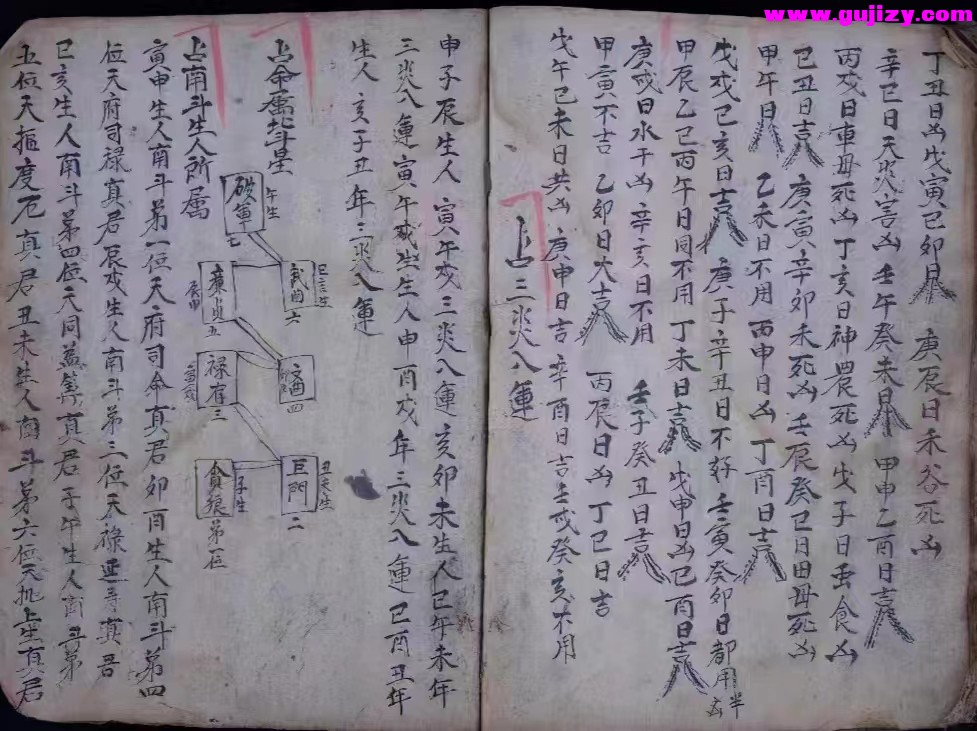 www.gujizy.com
丁丑日凶戊寅己卯日吉 庚辰日禾谷死凶
辛巳日天火害凶 壬午癸未日吉 甲申乙酉日吉
丙戌日車毋死凶 丁亥日神農死凶 戊子日虫食凶
己丑日吉 庚寅辛卯禾死凶 壬辰癸巳日田毋死凶
甲午日吉 乙未日不用 丙申日凶 丁酉日吉
戊戌己亥日吉 庚子辛丑日不好 壬寅癸卯日都用半吉
甲辰乙巳丙午日同不用 丁未日吉 戊申日凶己酉日吉
庚戌日水干凶 辛亥日不用 壬子癸丑日吉
甲寅不吉 乙卯日大吉 丙辰日凶 丁巳日吉
戊午己未日共凶 庚申日吉 辛酉日吉壬戌癸亥不用
占三災八運
申子辰生人 寅午戌三災八運 亥卯未生人巳午未年
三災八運 寅午戌生人申酉戌年三災八運 巳酉丑年
生人 亥子丑年三災八運
占命属北斗星
破軍
午生
七
武曲
巳未生
六
廉貞
辰申
五
文曲
卯酉
四
禄存
寅戌
三
巨門
丑亥生
二
貪狼
子生
第一位
占南斗生人所属
寅申生人南斗第一位天府司命真君 卯酉生人南斗第四
位天府司禄真君 辰戌生人南斗第三位天禄延寿真君
巳亥生人南斗第四位天同益筭真君 子午生人南斗第
五位天摳度厄真君 丑未生人南斗第六位天机上生真君